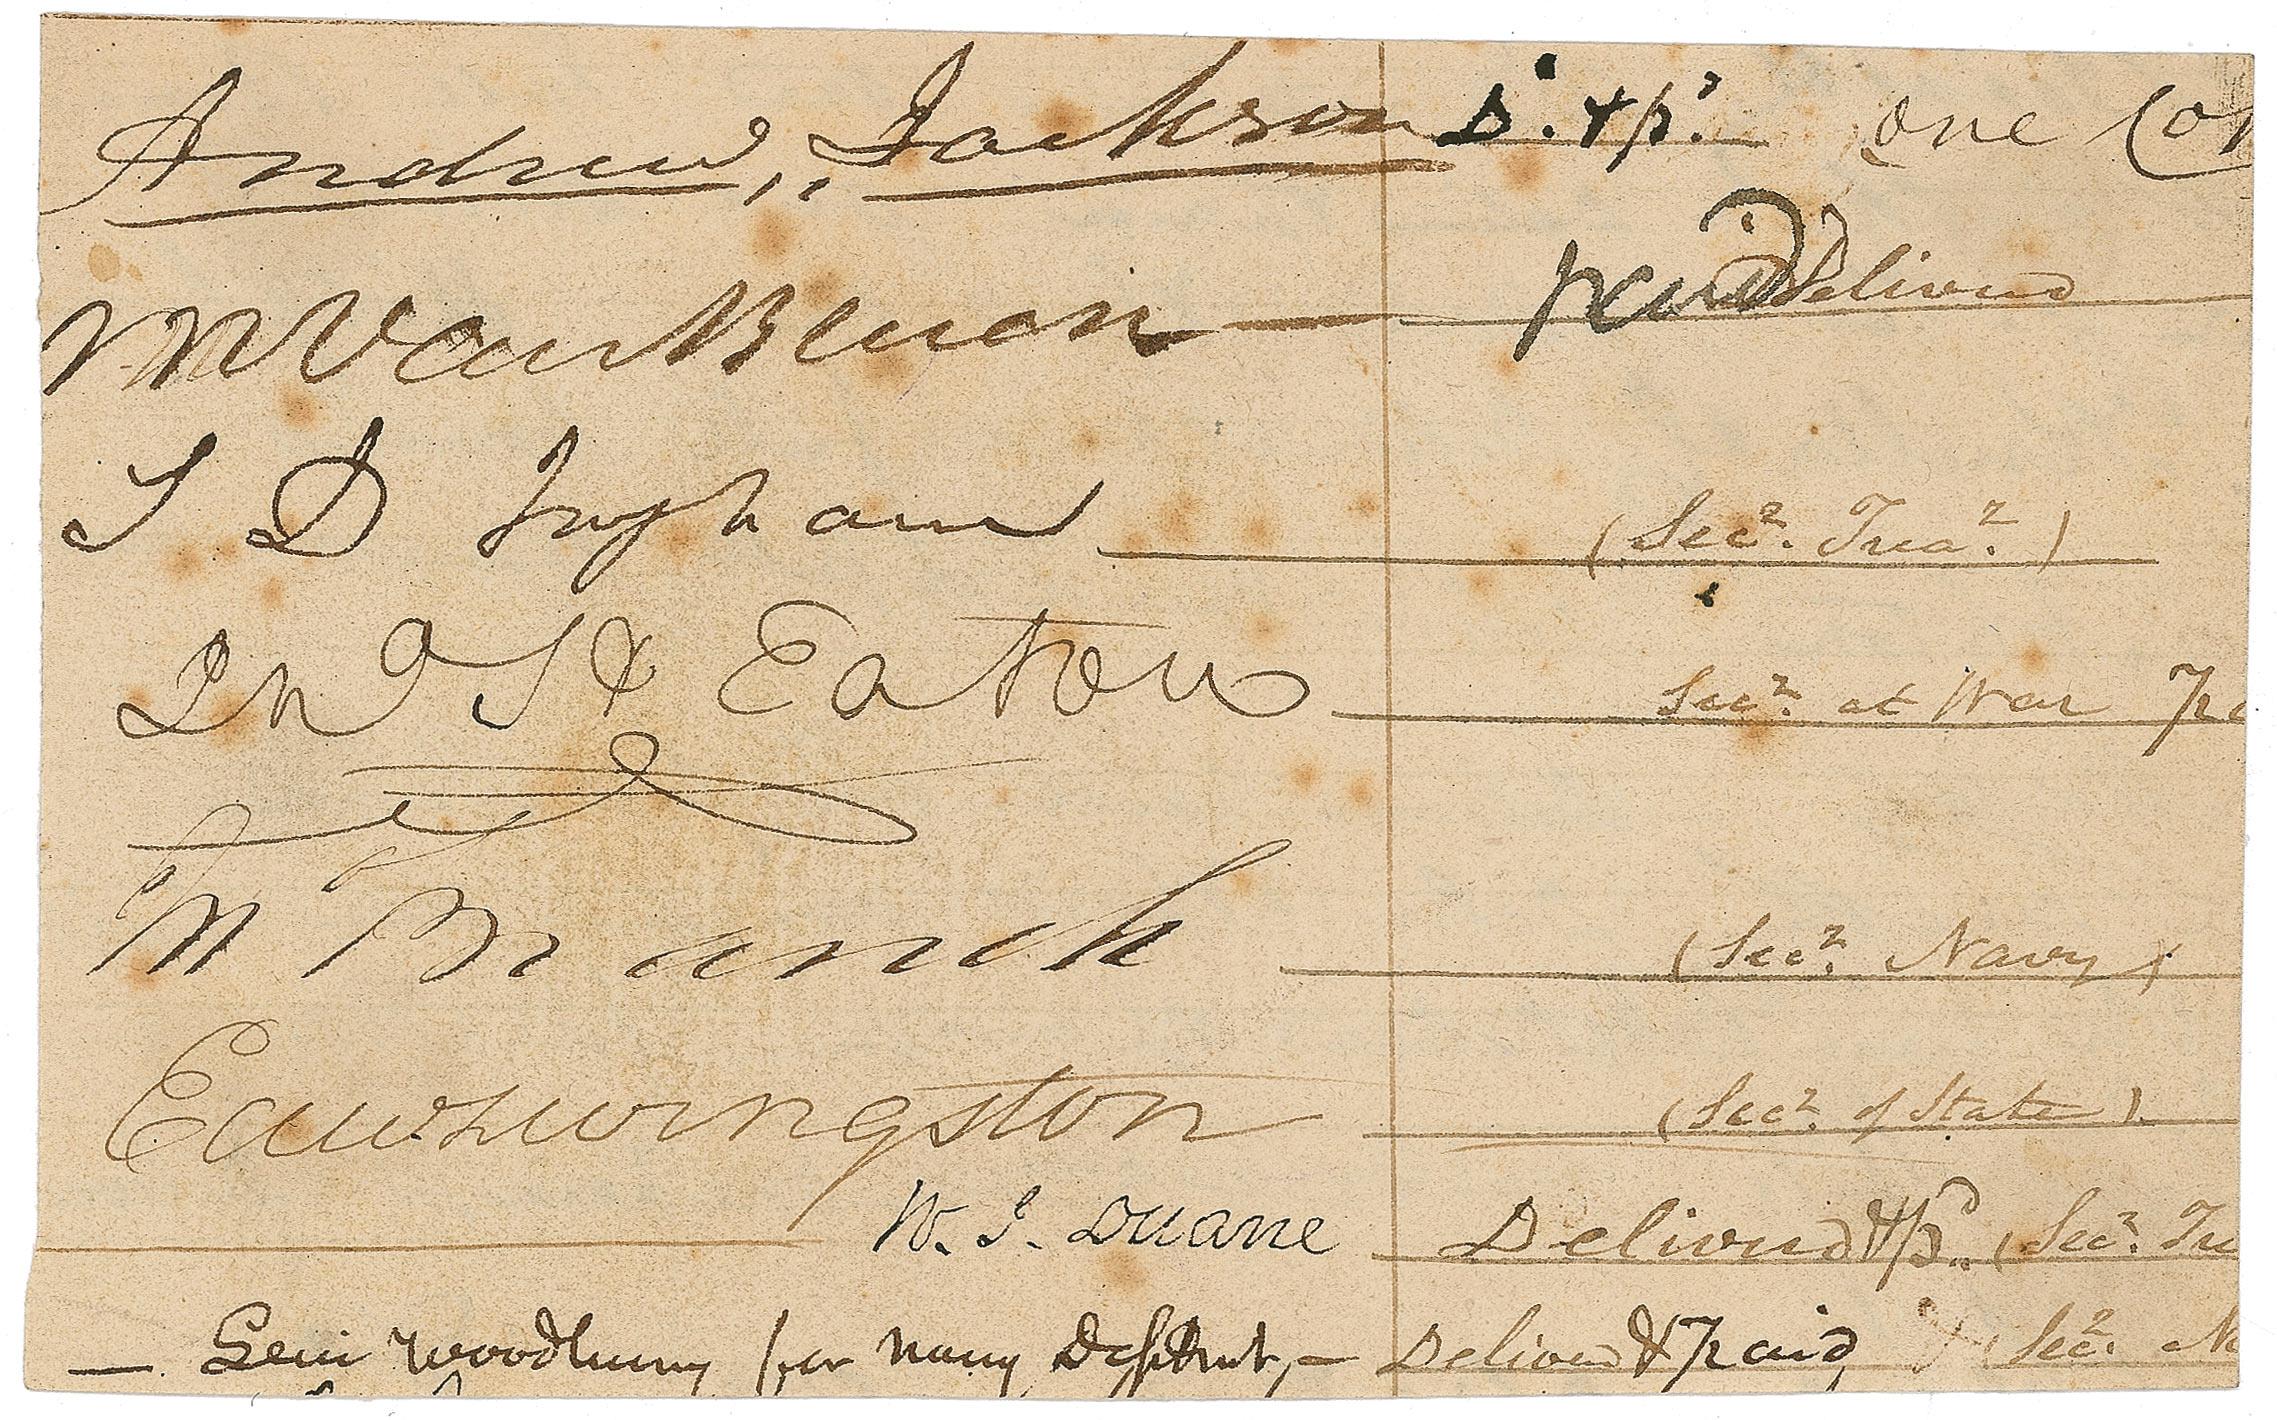 Andrew, Jackson D. & pd. one Co
M Van Buren — paid Delivered
S D Ingham (Secy. Trea.)
Jno H Eaton Secy. at War
Jn Branch (Secy. Navy)
Edw Livingston (Secy. of State)
W. J. Duane Delivered & pd. (Secy. Tre
— Levi Woodbury for Navy Departmt, — Delivered & paid, Secy. N